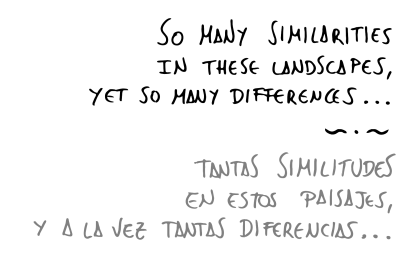 SO MANY SIMILARITIES
IN THESE LANDSCAPES,
YET SO MANY DIFFERENCES...
~.~
TANTAS SIMILITUDES
EN ESTOS PAISAJES,
Y A LA VEZ TANTAS DIFERENCIAS...